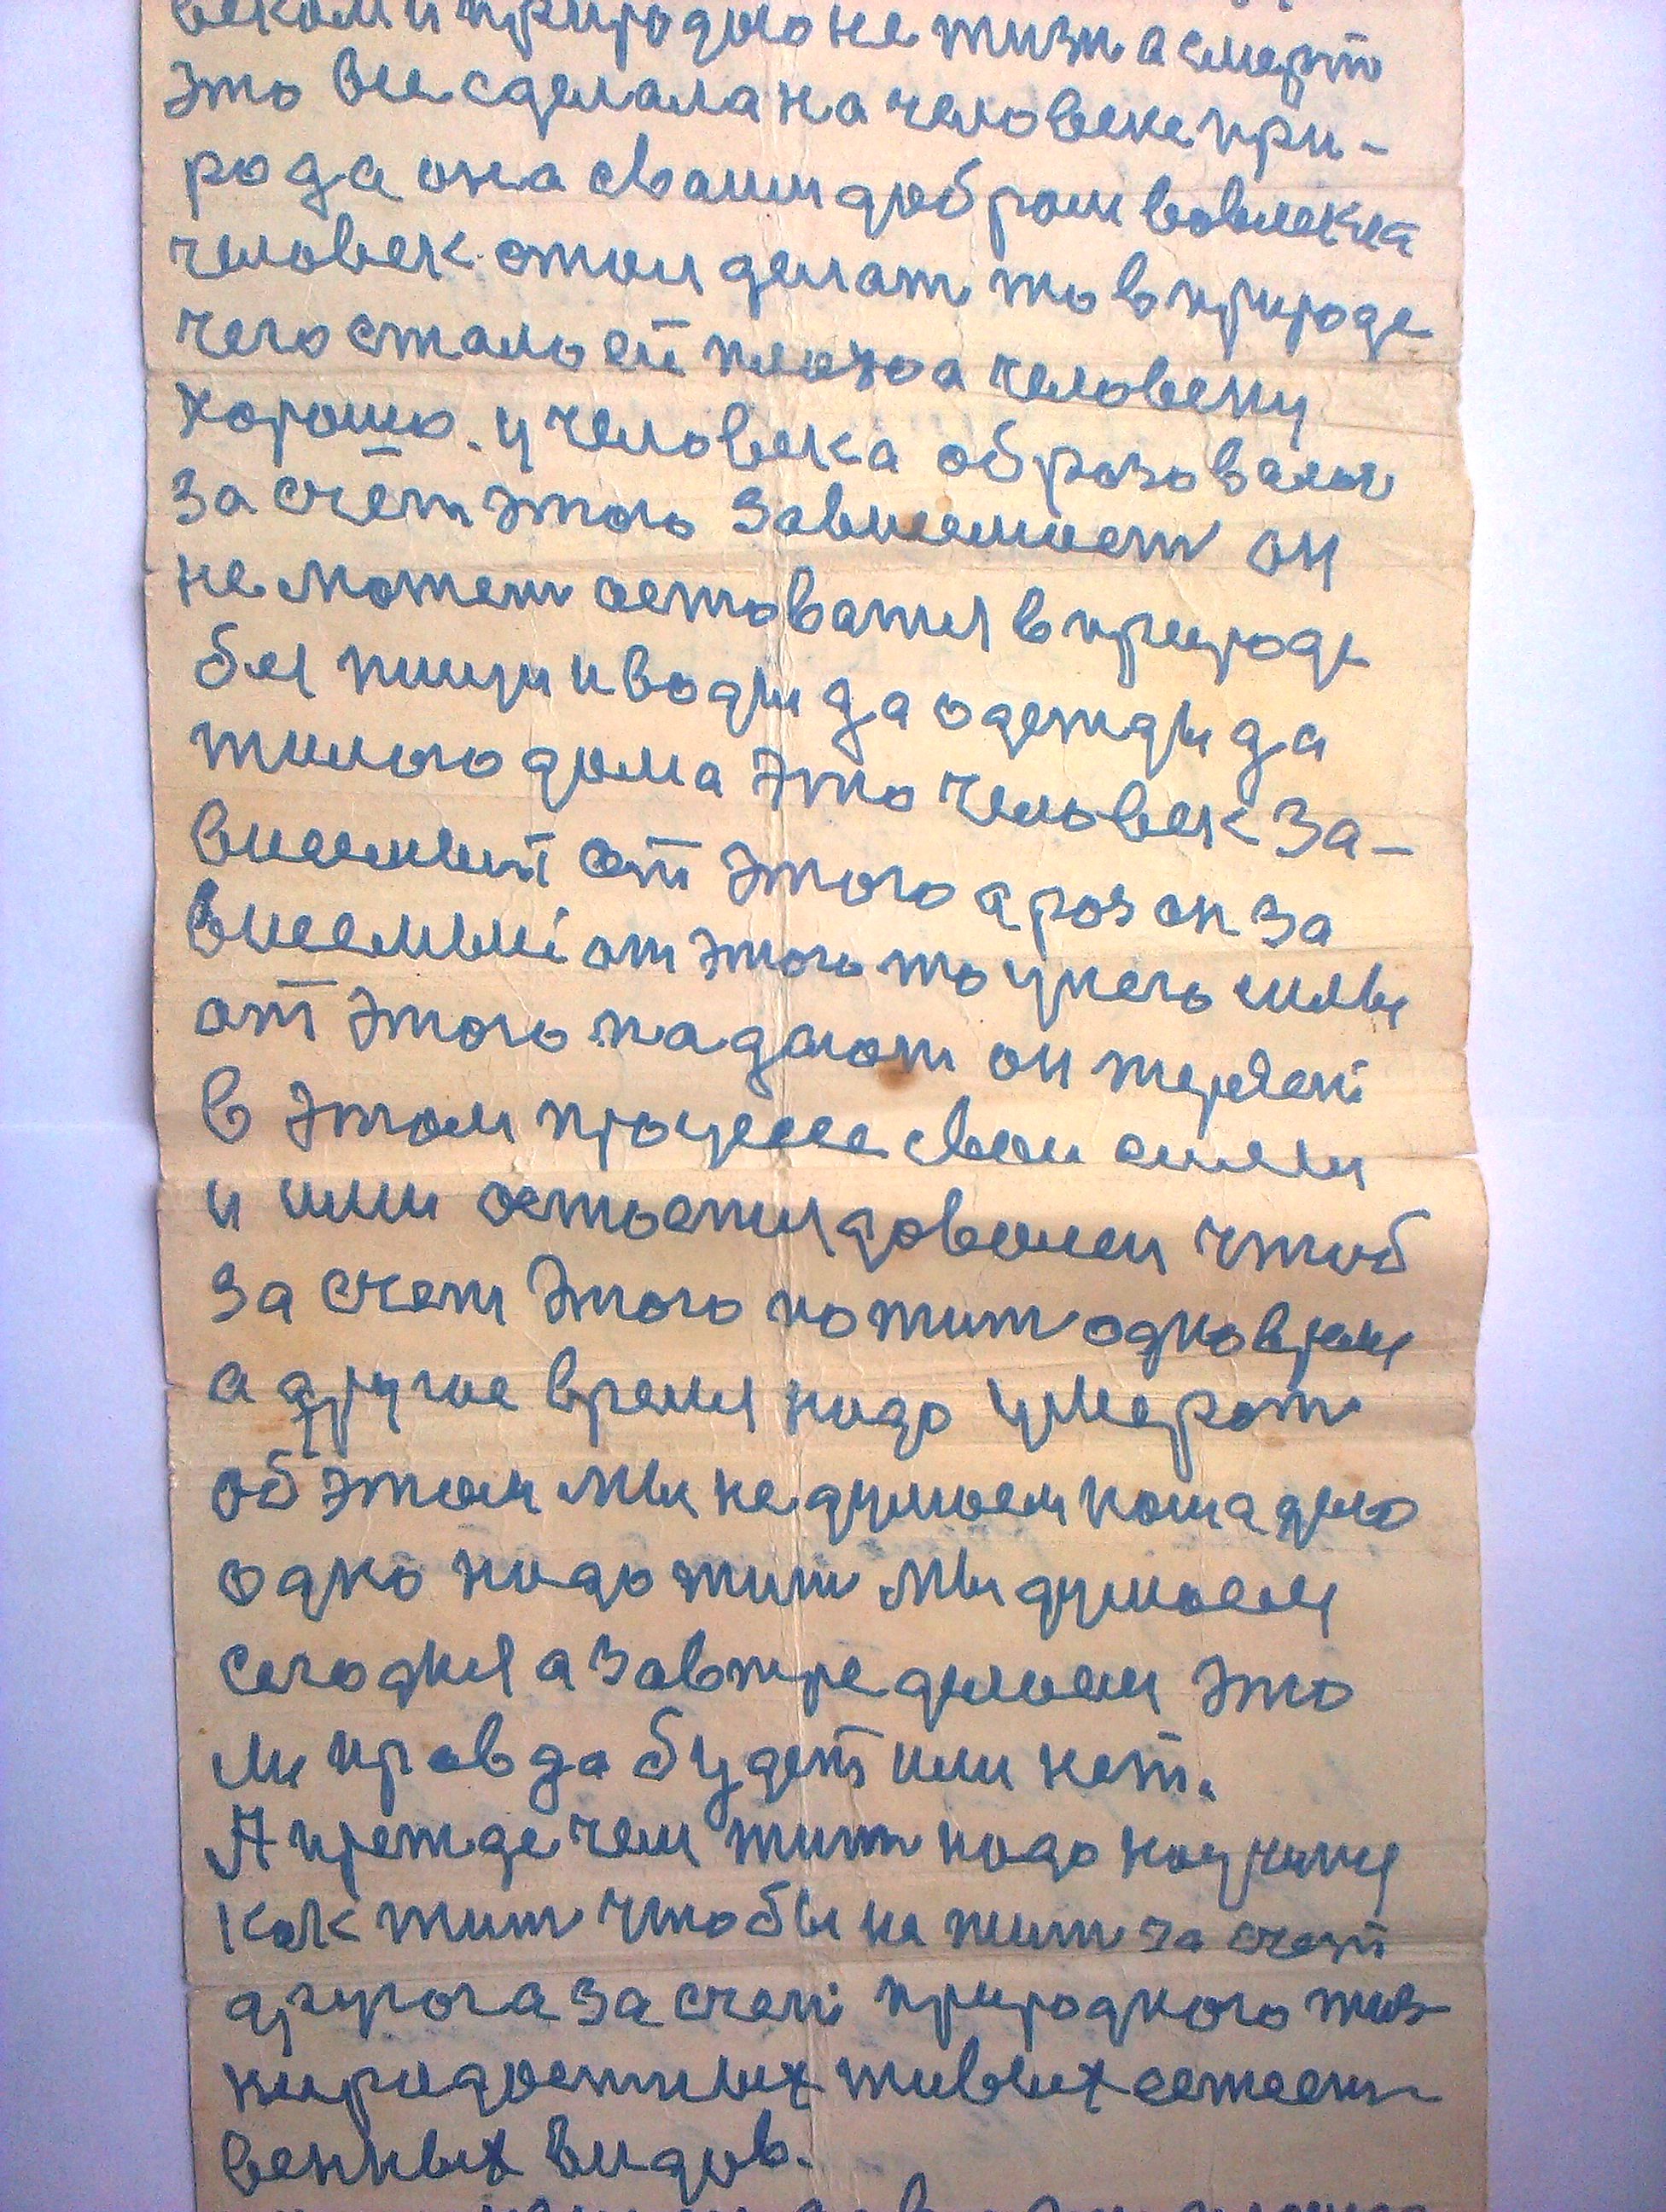 веком и природою не жизн а смерт
это все сделала на человеке при-
рода она своим добром вовлекла
человек стал делат то в природе
чего стало ей плохо а человеку
хорошо. у человека образовалос
за счёт этого зависемост он
не может оставатся в природе
без пищи и воды да одежды да
жилого дома это человек за-
висемый от этого а роз он за
висемый от этого то у него силы
от этого падают он теряет
в этом процессе свои силы
и или остоется довелен чтоб
за счет этого пожит одно врем
а другое время надо умерат
об этом мы не думаем наша дело
одно надо жит мы думаем
сегодня а завтре делаем это
ли правда будет или нет.
А прежде чем жит надо научитс
как жит чтобы не жит за счет
другога за счет природного жив
нерадостных живых естеств
венных видов.